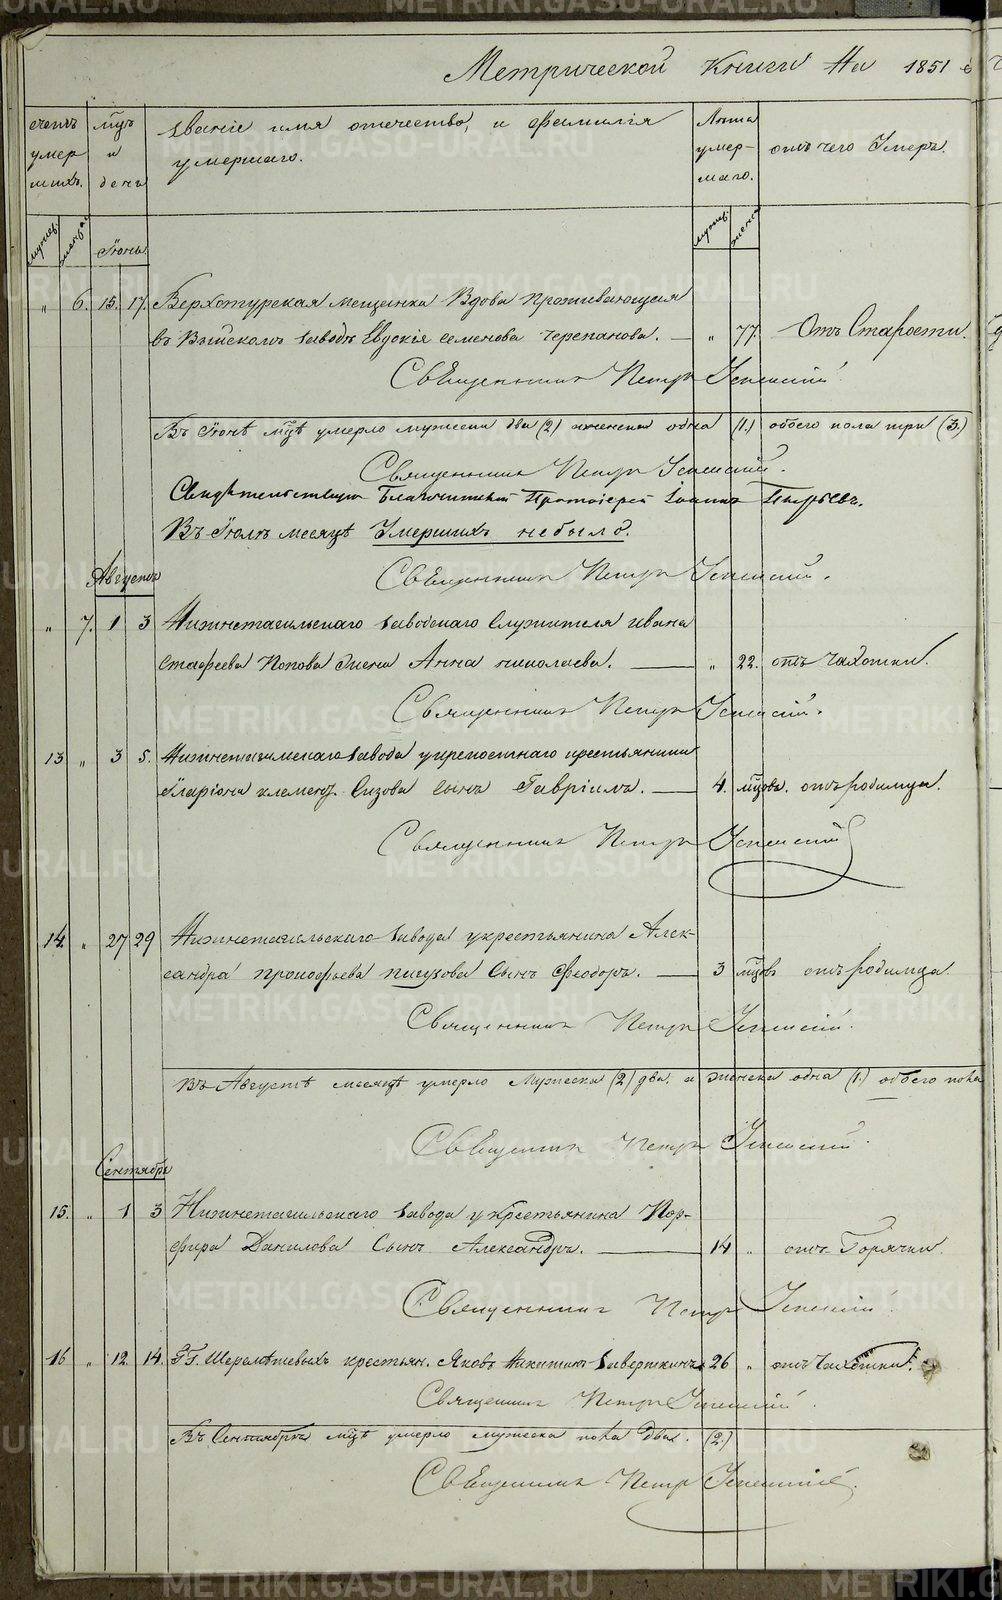 Метрической Книги На 1851
счетъ умер шихъ.
мцъ и день
званіе имя отечество, и Фамилія
умершаго.
Лѣта умер- шаго.
отъ чего Умеръ.
мужес женска
Іюнь
мужес женск
" 6. 15. 17. Верхотурская мещанка Вдова Проживающая
въ Выйскомъ заводѣ Евдокія семенова черепанова. — " 77. Отъ Старости.
Священникъ Петръ Успенскій
Въ Іюнѣ мцѣ умерло мужеска два (2) женска одна (1.) обоего пола три (3.)
Священникъ Петръ Успенскій.
Свидѣтельствовалъ Благочинный Протоіерей Іоаннъ
Въ Іюлѣ месяцѣ Умершихъ небыло.
Священникъ Петръ Успенскій.
Августъ
" 7. 1 3 Нижнетагильскаго заводскаго Служителя Ивана
стафеева Попова Жена Анна николаева. — " 22. отъ Чахотки.
Священникъ Петръ Успенскій.
13 " 3 5. Нижнетагильскаго завода укрепостнаго крестьянина
Иларіона клемент. Сизова Сынъ Гавріилъ. — 4. мцовъ. отъ родимца.
Священникъ Петръ Успенскій
14. " 27 29 Нижнетагильскаго завода укрестьянина Алек-
сандра прокофьева Сынъ Феодоръ. — 3 мцовъ отъ родимца.
Священникъ Петръ Успенскій.
Въ Августѣ месяцѣ умерло Мужеска (2) два. и женска одна (1.) обоего пола
Священникъ Петръ Успенскій.
Сентябрь
15. " 1 3 Нижнетагильскаго завода укрестьянина Пор-
фира Данилова Сынъ Александръ. — 14 " отъ Горячки.
Священникъ Петръ Успенскій
16 " 12. 14. Гг. Шереметевыхъ крестьян. Яковъ Никитинъ заверткинъ 26 " отъ Чахотки.
Священникъ Петръ Успенскій.
Въ Сентябрѣ мцѣ умерло мужеска пола двое. (2.)
Священникъ Петръ Успенскій.
METRIKI.GASO-URAL.RU